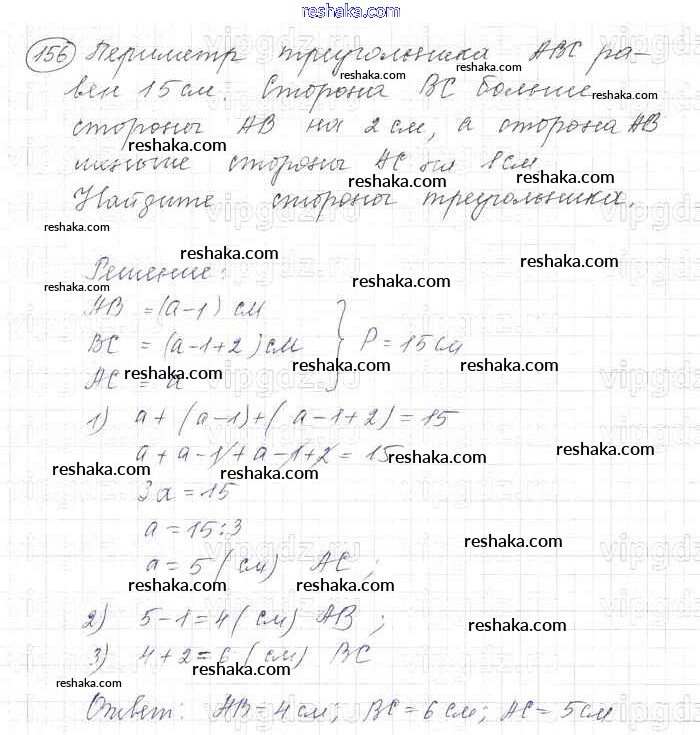 reshaka.com
156 Периметр треугольника ABC ра-
reshaka.com
вен 15 см. Сторона BC больше
reshaka.com
стороны AB на 2 см, а сторона AB
reshaka.com
меньше стороны AC на 1 см
reshaka.com
Найдите стороны треугольника.
reshaka.com reshaka.com
reshaka.com reshaka.com
Решение:
reshaka.com reshaka.com
AB = (a-1) см
BC = (a-1+2) см } P = 15 см
reshaka.com reshaka.com
AC = a
1) a + (a-1)+( a-1+2) = 15
a + a-1+a-1+2 = 15
reshaka.com reshaka.com reshaka.com
3a = 15
a = 15:3
reshaka.com
a = 5 ( см) AC ;
reshaka.com reshaka.com
2) 5-1=4 ( см) AB ;
reshaka.com
3) 4+2=6 ( см) BC
reshaka.com reshaka.com
reshaka.com
Ответ: AB=4 см; BC=6 см; AC=5 см
reshaka.com